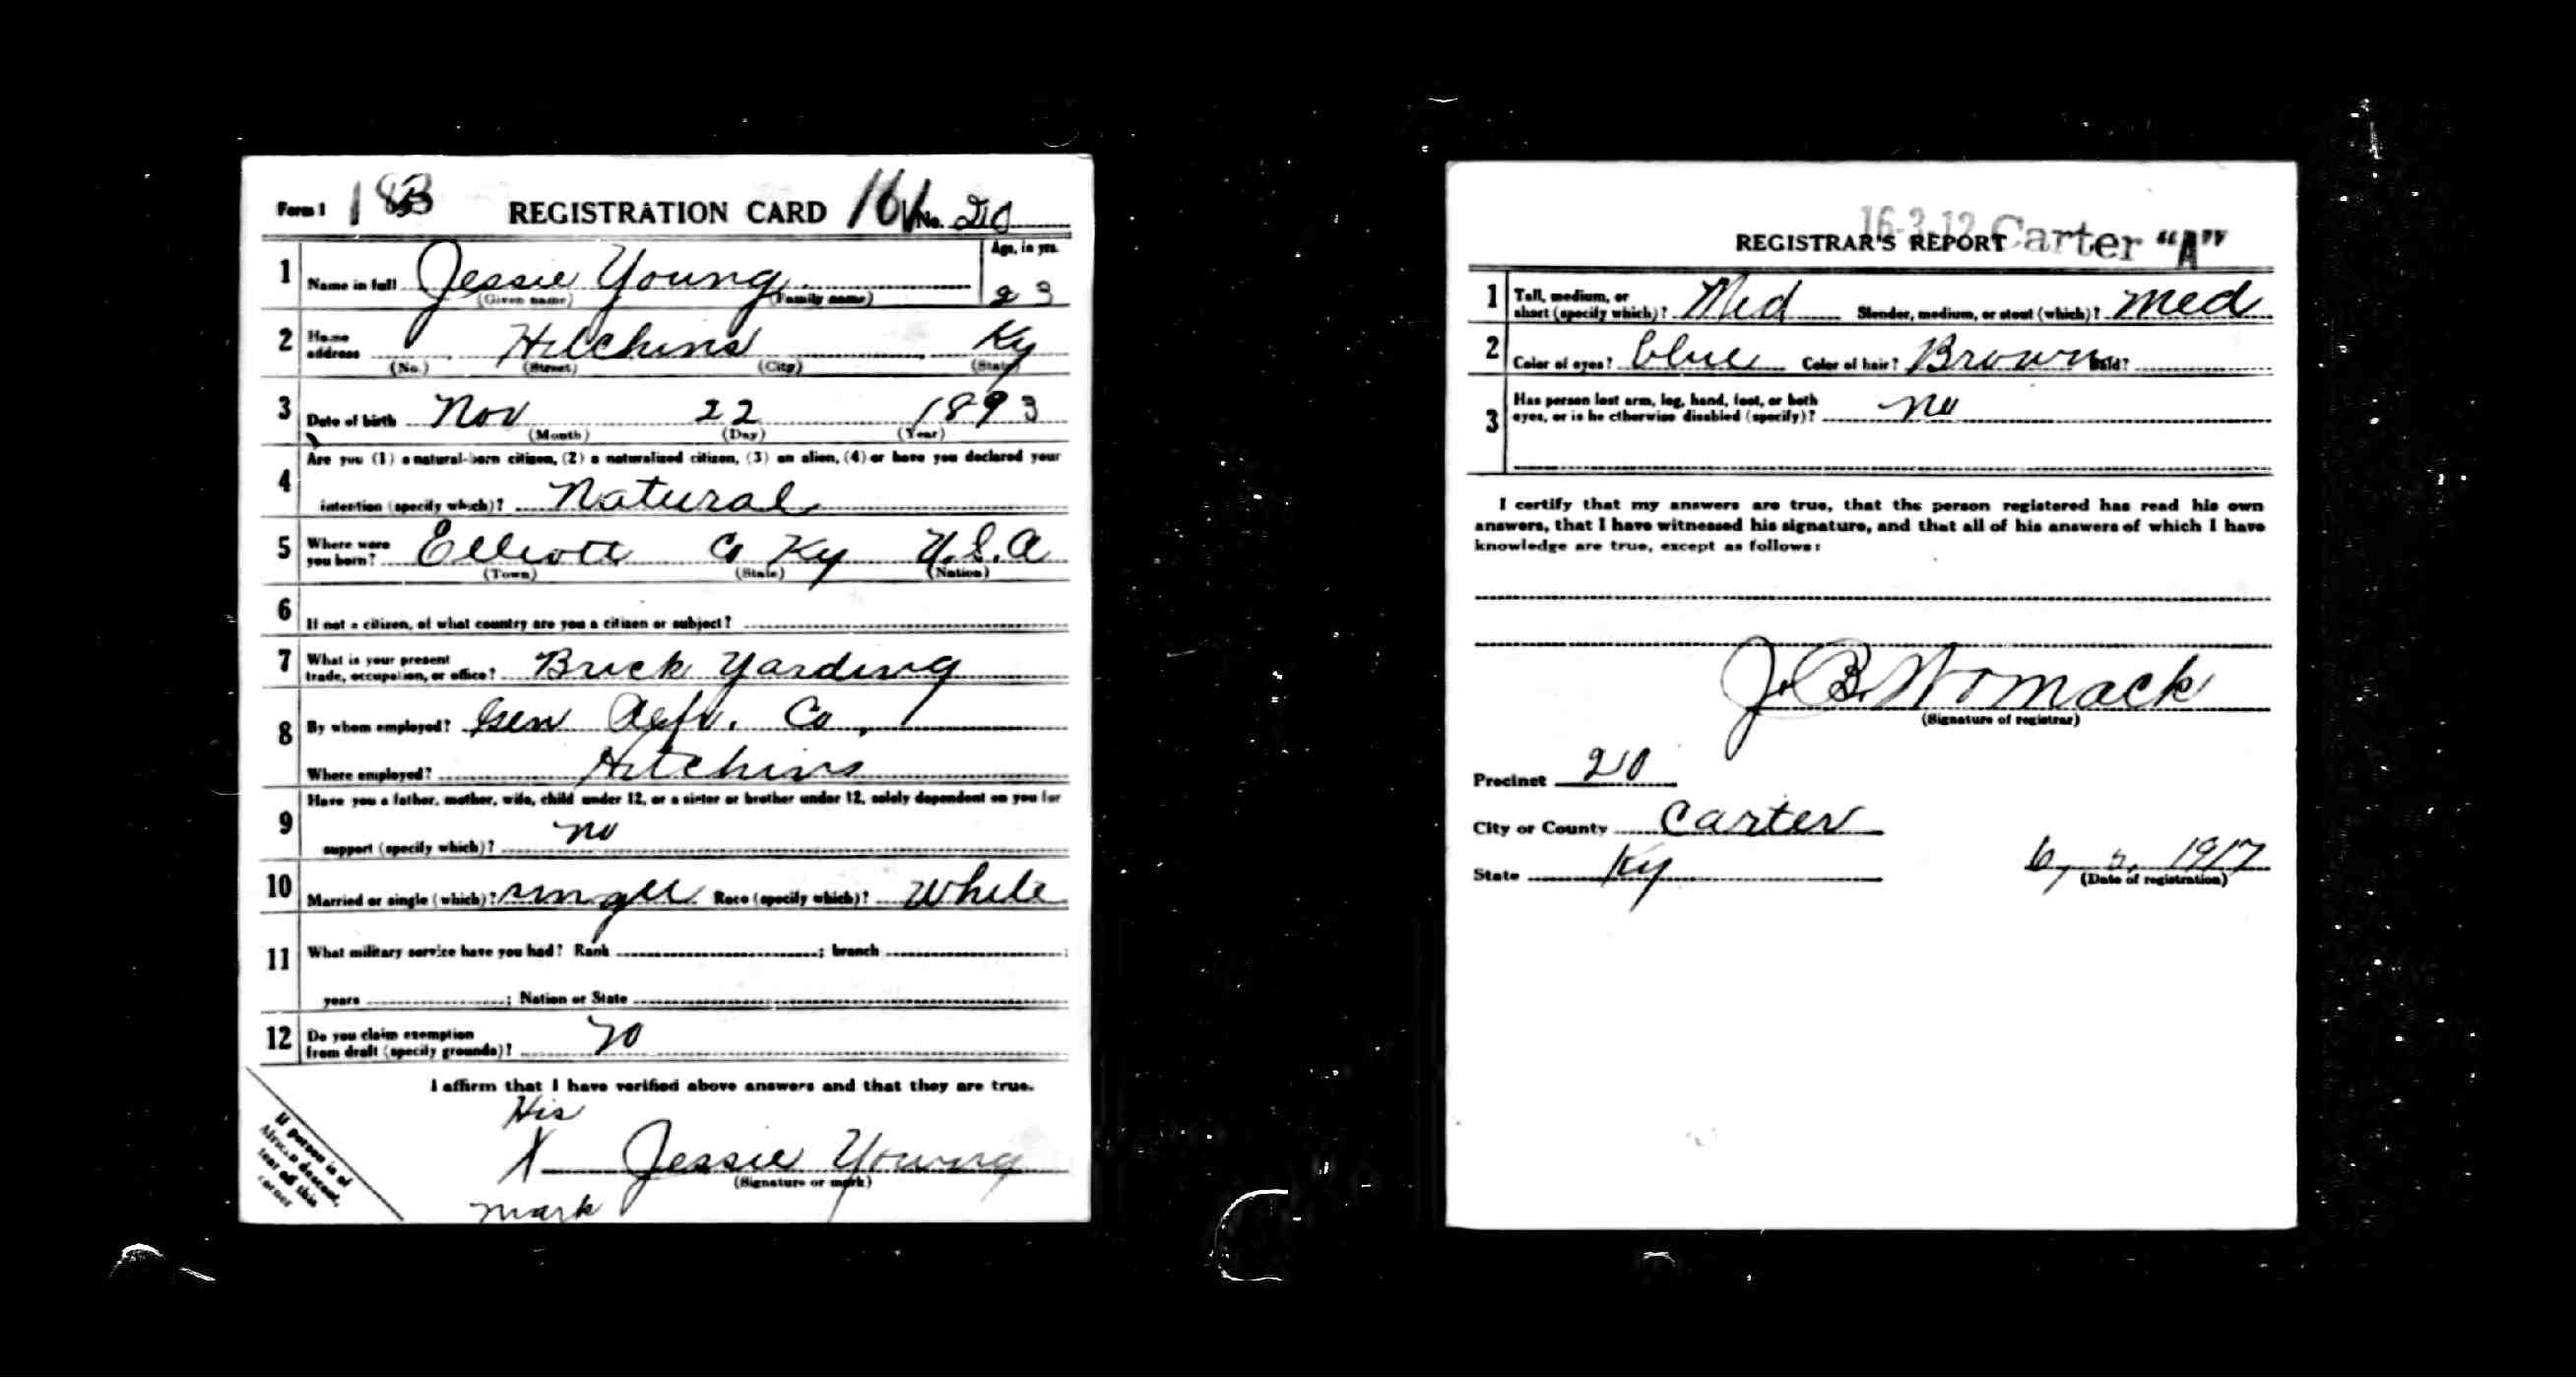 Form 1 18B REGISTRATION CARD 161 No. 20
1 Name in full Jessie Young Age, in yrs.
(Given name) (Family name) 23
2 Home address Hitchins Ky
(No.) (Street) (City) (State)
3 Date of birth Nov 22 1893
(Month) (Day) (Year)
4 Are you (1) a natural-born citizen, (2) a naturalized citizen, (3) an alien, (4) or have you declared your
intention (specify which)? Natural
5 Where were
you born? Elliott Co Ky U.S.A
(Town) (State) (Nation)
6 If not a citizen, of what country are you a citizen or subject?
7 What is your present
trade, occupation, or office? Brick Yarding
8 By whom employed? Gen Refr. Co,
Where employed? Hitchins
9 Have you a father, mother, wife, child under 12, or a sister or brother under 12, solely dependent on you for
support (specify which)? no
10 Married or single (which)? single Race (specify which)? White
11 What military service have you had? Rank ; branch ;
years ; Nation or State
12 Do you claim exemption
from draft (specify grounds)? no
I affirm that I have verified above answers and that they are true.
His
X Jessie Young
(Signature or mark)
mark
If person is of
African descent,
tear off this
corner
16-3-12 Carter "A"
REGISTRAR'S REPORT
1 Tall, medium, or
short (specify which)? Med Slender, medium, or stout (which)? Med
2 Color of eyes? Blue Color of hair? Brown Bald?
3 Has person lost arm, leg, hand, foot, or both
eyes, or is he otherwise disabled (specify)? no
I certify that my answers are true, that the person registered has read his own
answers, that I have witnessed his signature, and that all of his answers of which I have
knowledge are true, except as follows:
J. B. Womack
(Signature of registrar)
Precinct 20
City or County Carter
State Ky 6, 5, 1917
(Date of registration)